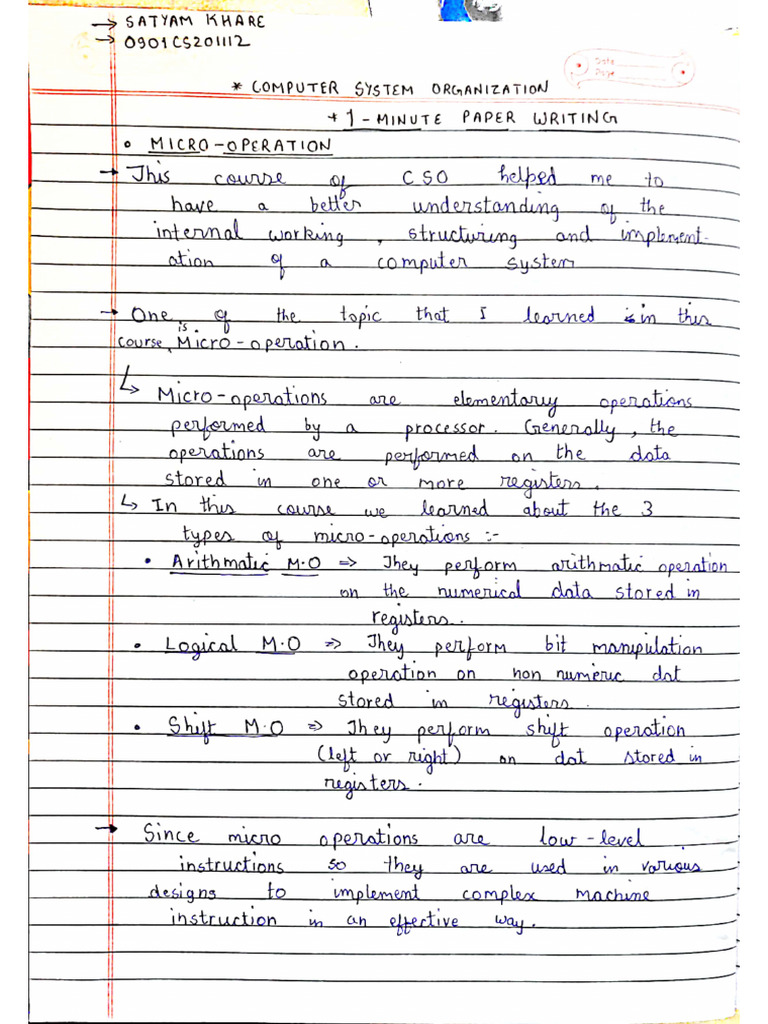 → SATYAM KHARE
→ 0901CS201112
Date
Page
* COMPUTER SYSTEM ORGANIZATION
+ 1-MINUTE PAPER WRITING
• MICRO-OPERATION
→ This course of CSO helped me to
have a better understanding of the
internal working, structuring and implement-
ation of a computer system
→ One of the topic that I learned in this
is
course, Micro-operation.
↳ Micro-operations are elementary operations
performed by a processor. Generally, the
operations are performed on the data
stored in one or more registers.
↳ In this course we learned about the 3
types of micro-operations :-
• Arithmatic M.O => They perform arithmatic operation
on the numerical data stored in
registers.
• Logical M.O => They perform bit manipulation
operation on non numeric dat
stored in registers.
• Shift M.O => They perform shift operation
(left or right) on dat stored in
registers.
→ Since micro operations are low-level
instructions so they are used in various
designs to implement complex machine
instruction in an effective way.